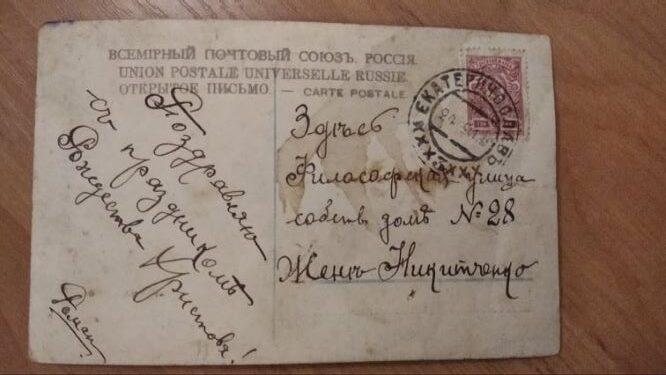 ВСЕМІРНЫЙ ПОЧТОВЫЙ СОЮЗЪ. РОССІЯ.
UNION POSTALE UNIVERSELLE RUSSIE.
ОТКРЫТОЕ ПИСЬМО. — CARTE POSTALE.
Поздравляю
съ праздникомъ
Рождества Христова!
Роман
ЕКАТЕРИНОСЛАВЪ
Здѣсь
Философская улица
собств. домъ № 28
Женѣ Никитченко